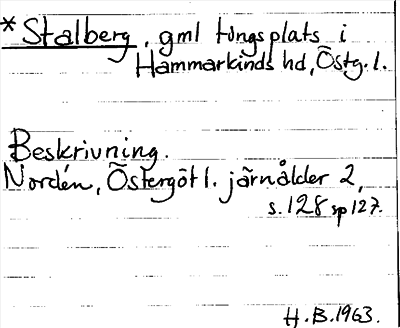 *Stalberg, gml tingsplats i
Hammarkinds hd, Östg. l.
Beskrivning.
Nordén, Östergötl. järnålder 2,
s. 128 sp 127.
H.B. 1963.